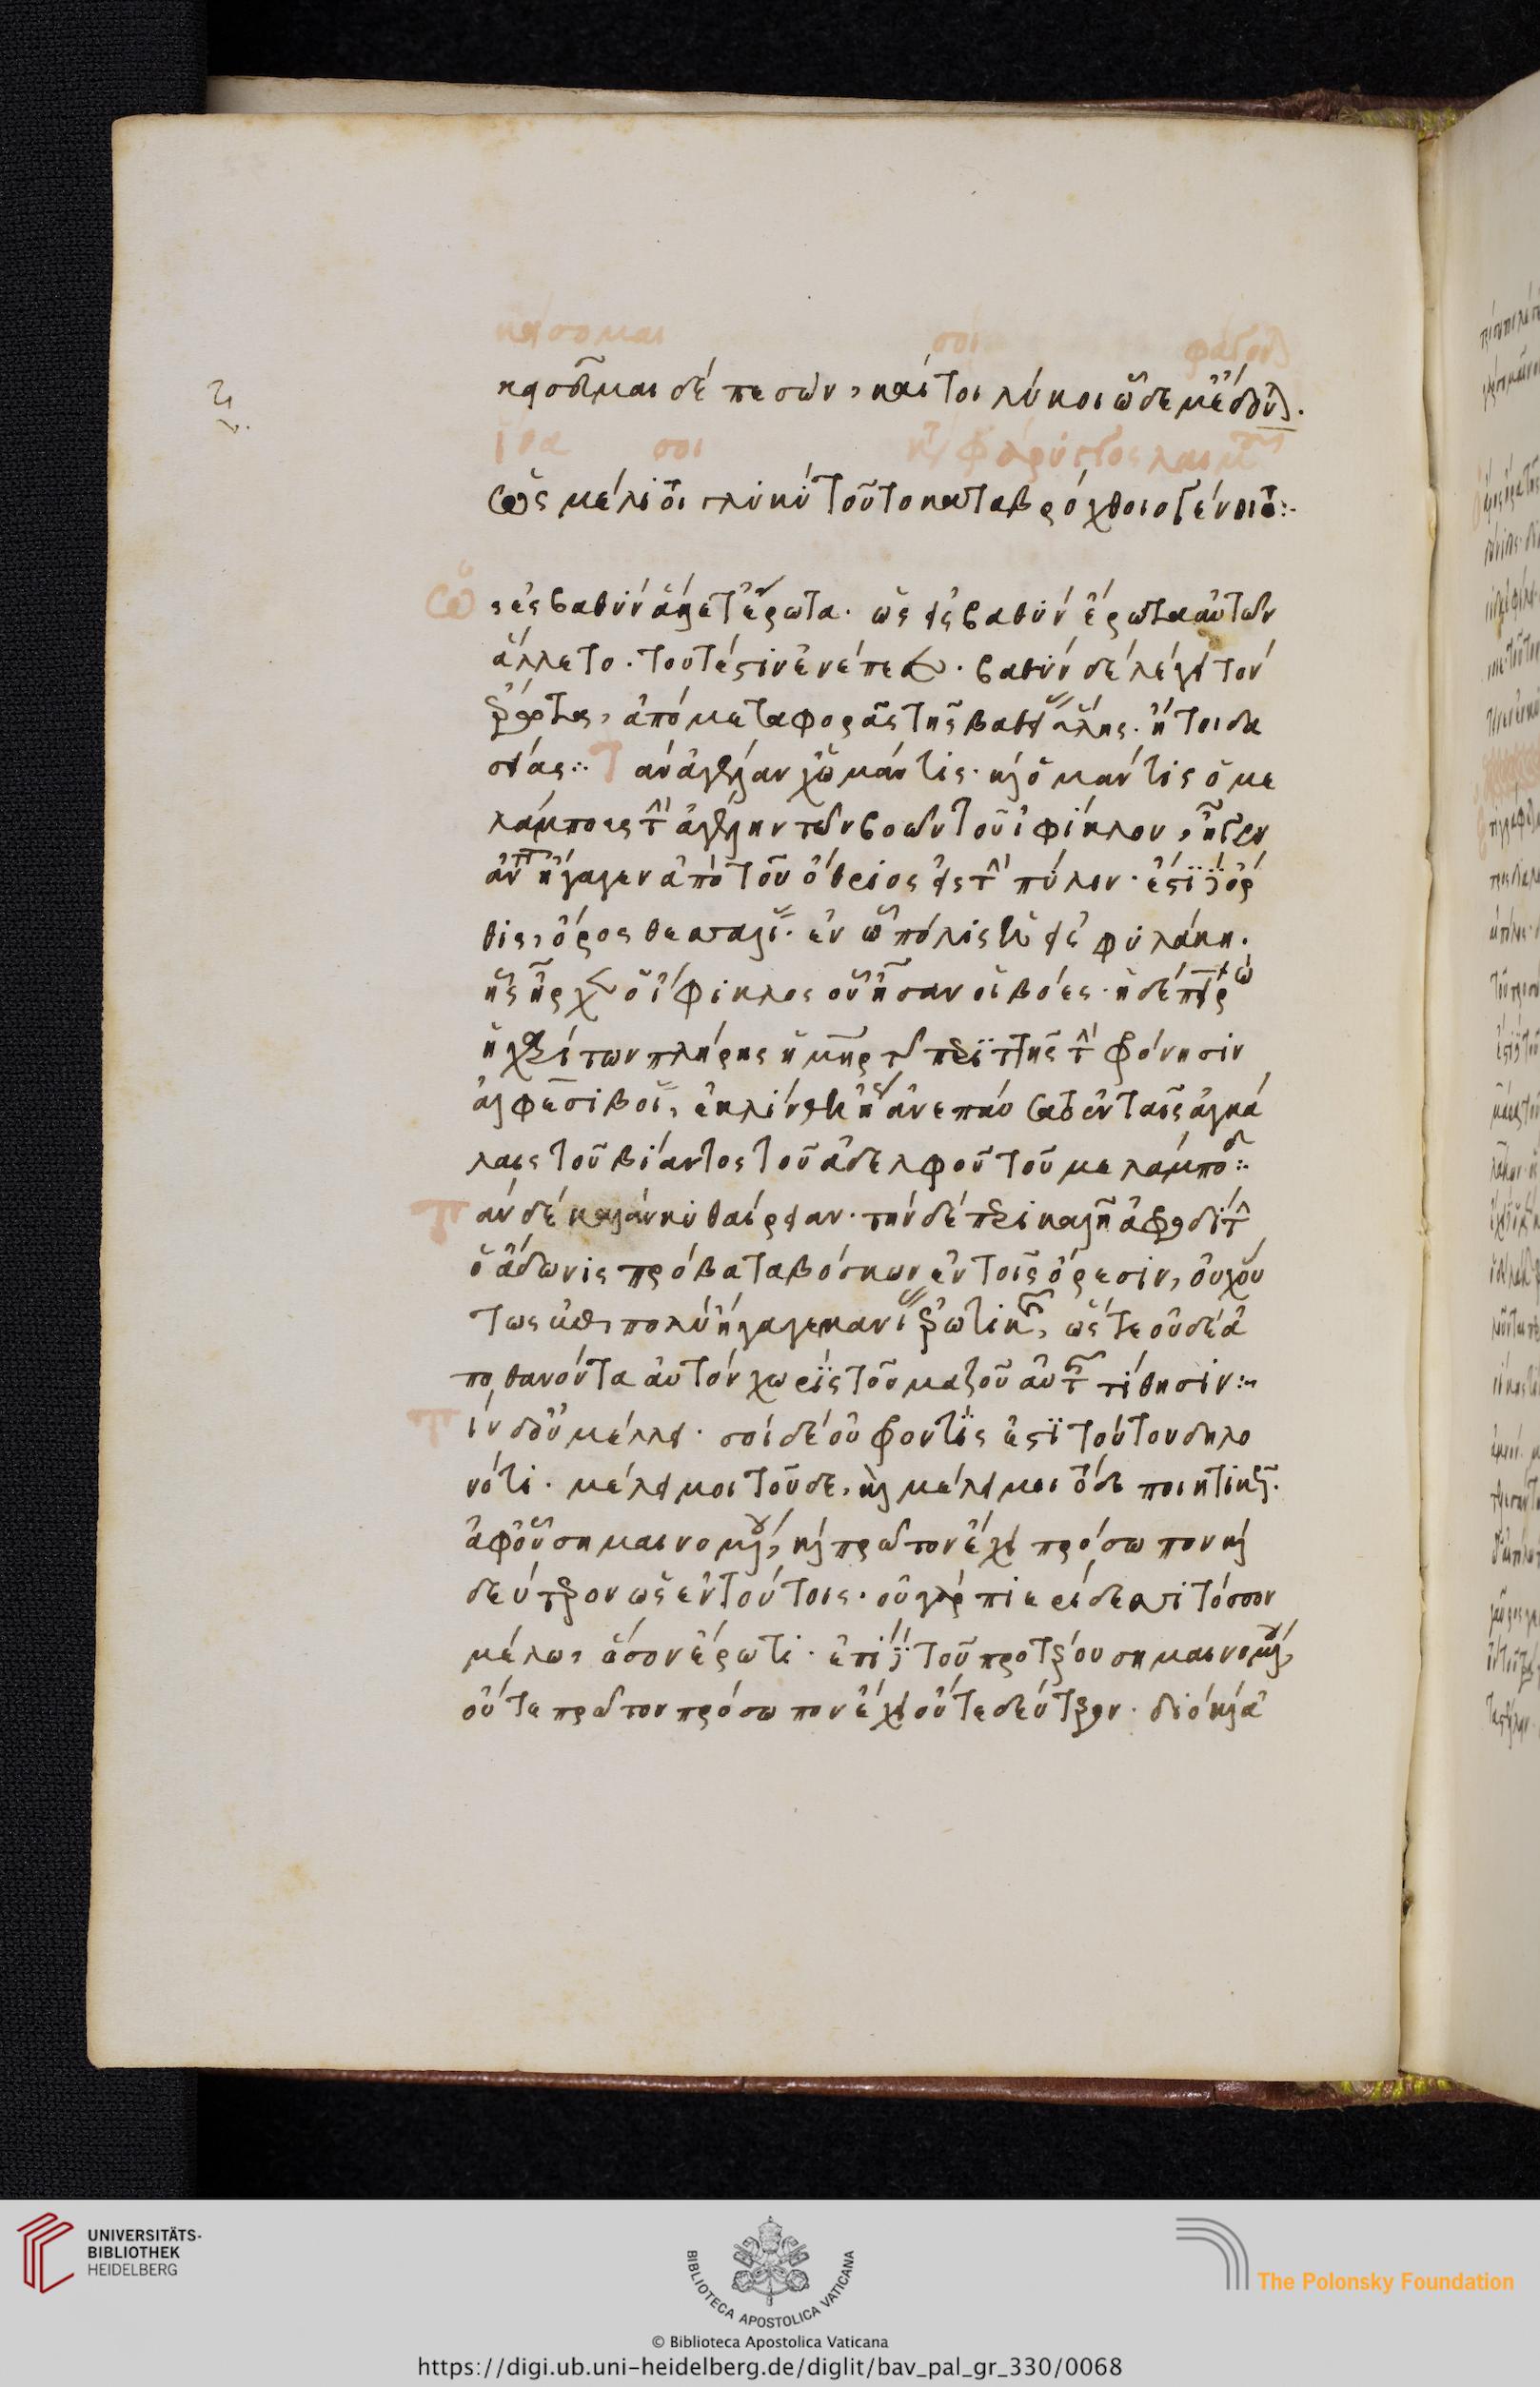 κείσομαι σοι φάγουσι
κεισοῦμαι δὲ πεσών, καί τοι λύκοι ὧδέ μ' ἔδονται.
ἵνα σοι κατὰ φάρυγγος λαιμοῦ
ὡς μέλι τοι γλυκὺ τοῦτο κατὰ βρόχθοιο γένοιτο:·
ὡς ἐς βαθὺν ἅλετ' ἔρωτα. ὡς εἰς βαθὺν ἔρωτα αὐτῶν
ἅλλετο. τουτέστιν ἐνέπεσε. βαθὺν δὲ λέγει τὸν
ἔρωτα, ἀπὸ μεταφορᾶς τῆς βαθείας ὕλης. ἤτοι δα
σείας:· Τὰν ἀγέλαν χὠ μάντις. καὶ ὁ μάντις ὁ με
λάμπους τὴν ἀγέλην τῶν βοῶν τοῦ ἰφίκλου, ἤγουν
ἤγαγεν ἀπὸ τοῦ ὄθριος εἰς τὴν πύλον. ἔστι δὲ ὄ
θρις, ὄρος θεσσαλίας. ἐν ᾧ πόλις ἦν ἡ φυλάκη.
ἧς ἦρχεν ὁ ἴφικλος οὗ ἦσαν οἱ βόες. ἡ δὲ πείρω
ἡ χαρίτων πλήρης ἡ μήτηρ τῆς περὶ τῆς τὴν φρόνησιν
ἀλφεσιβοίας, ἐκλίνθη ἤγουν ἀνεπαύσατο ἐν ταῖς ἀγκά
λαις τοῦ βίαντος τοῦ ἀδελφοῦ τοῦ μελάμποδος:·
Τὰν δὲ καλὰν κυθαίρειαν. τὴν δὲ περικαλῆ ἀφροδίτην
ὁ ἄδωνις πρόβατα βόσκων ἐν τοῖς ὄρεσιν, οὐχ οὕ
τως ἐπὶ πολὺ ἤγαγε μανίας ἐρωτικῆς, ὥστε οὐδὲ ἀ
ποθανόντα αὐτὸν χωρὶς τοῦ μαζοῦ αὐτῆς τίθησιν:·
Τὶν δ' οὐ μέλει. σοὶ δὲ οὐ φροντίς ἐστι τούτου δηλο
νότι. μέλει μοι τοῦδε, καὶ μέλει μοι τόδε ποιητικῶς.
ἀφ' οὗ σημαινομένου, καὶ πρῶτον ἔχει πρόσωπον καὶ
δεύτερον ὡς ἐν τούτοις. οὐ γὰρ πιερίδεσσι τόσσον
μέλω, ὅσον ἔρωτι. ἐπὶ δὲ τοῦ προτέρου σημαινομένου,
οὔτε πρῶτον πρόσωπον ἔχει οὔτε δεύτερον. διὸ καὶ ἀ
UNIVERSITÄTS-
BIBLIOTHEK
HEIDELBERG
BIBLIOTECA APOSTOLICA VATICANA
The Polonsky Foundation
© Biblioteca Apostolica Vaticana
https://digi.ub.uni-heidelberg.de/diglit/bav_pal_gr_330/0068